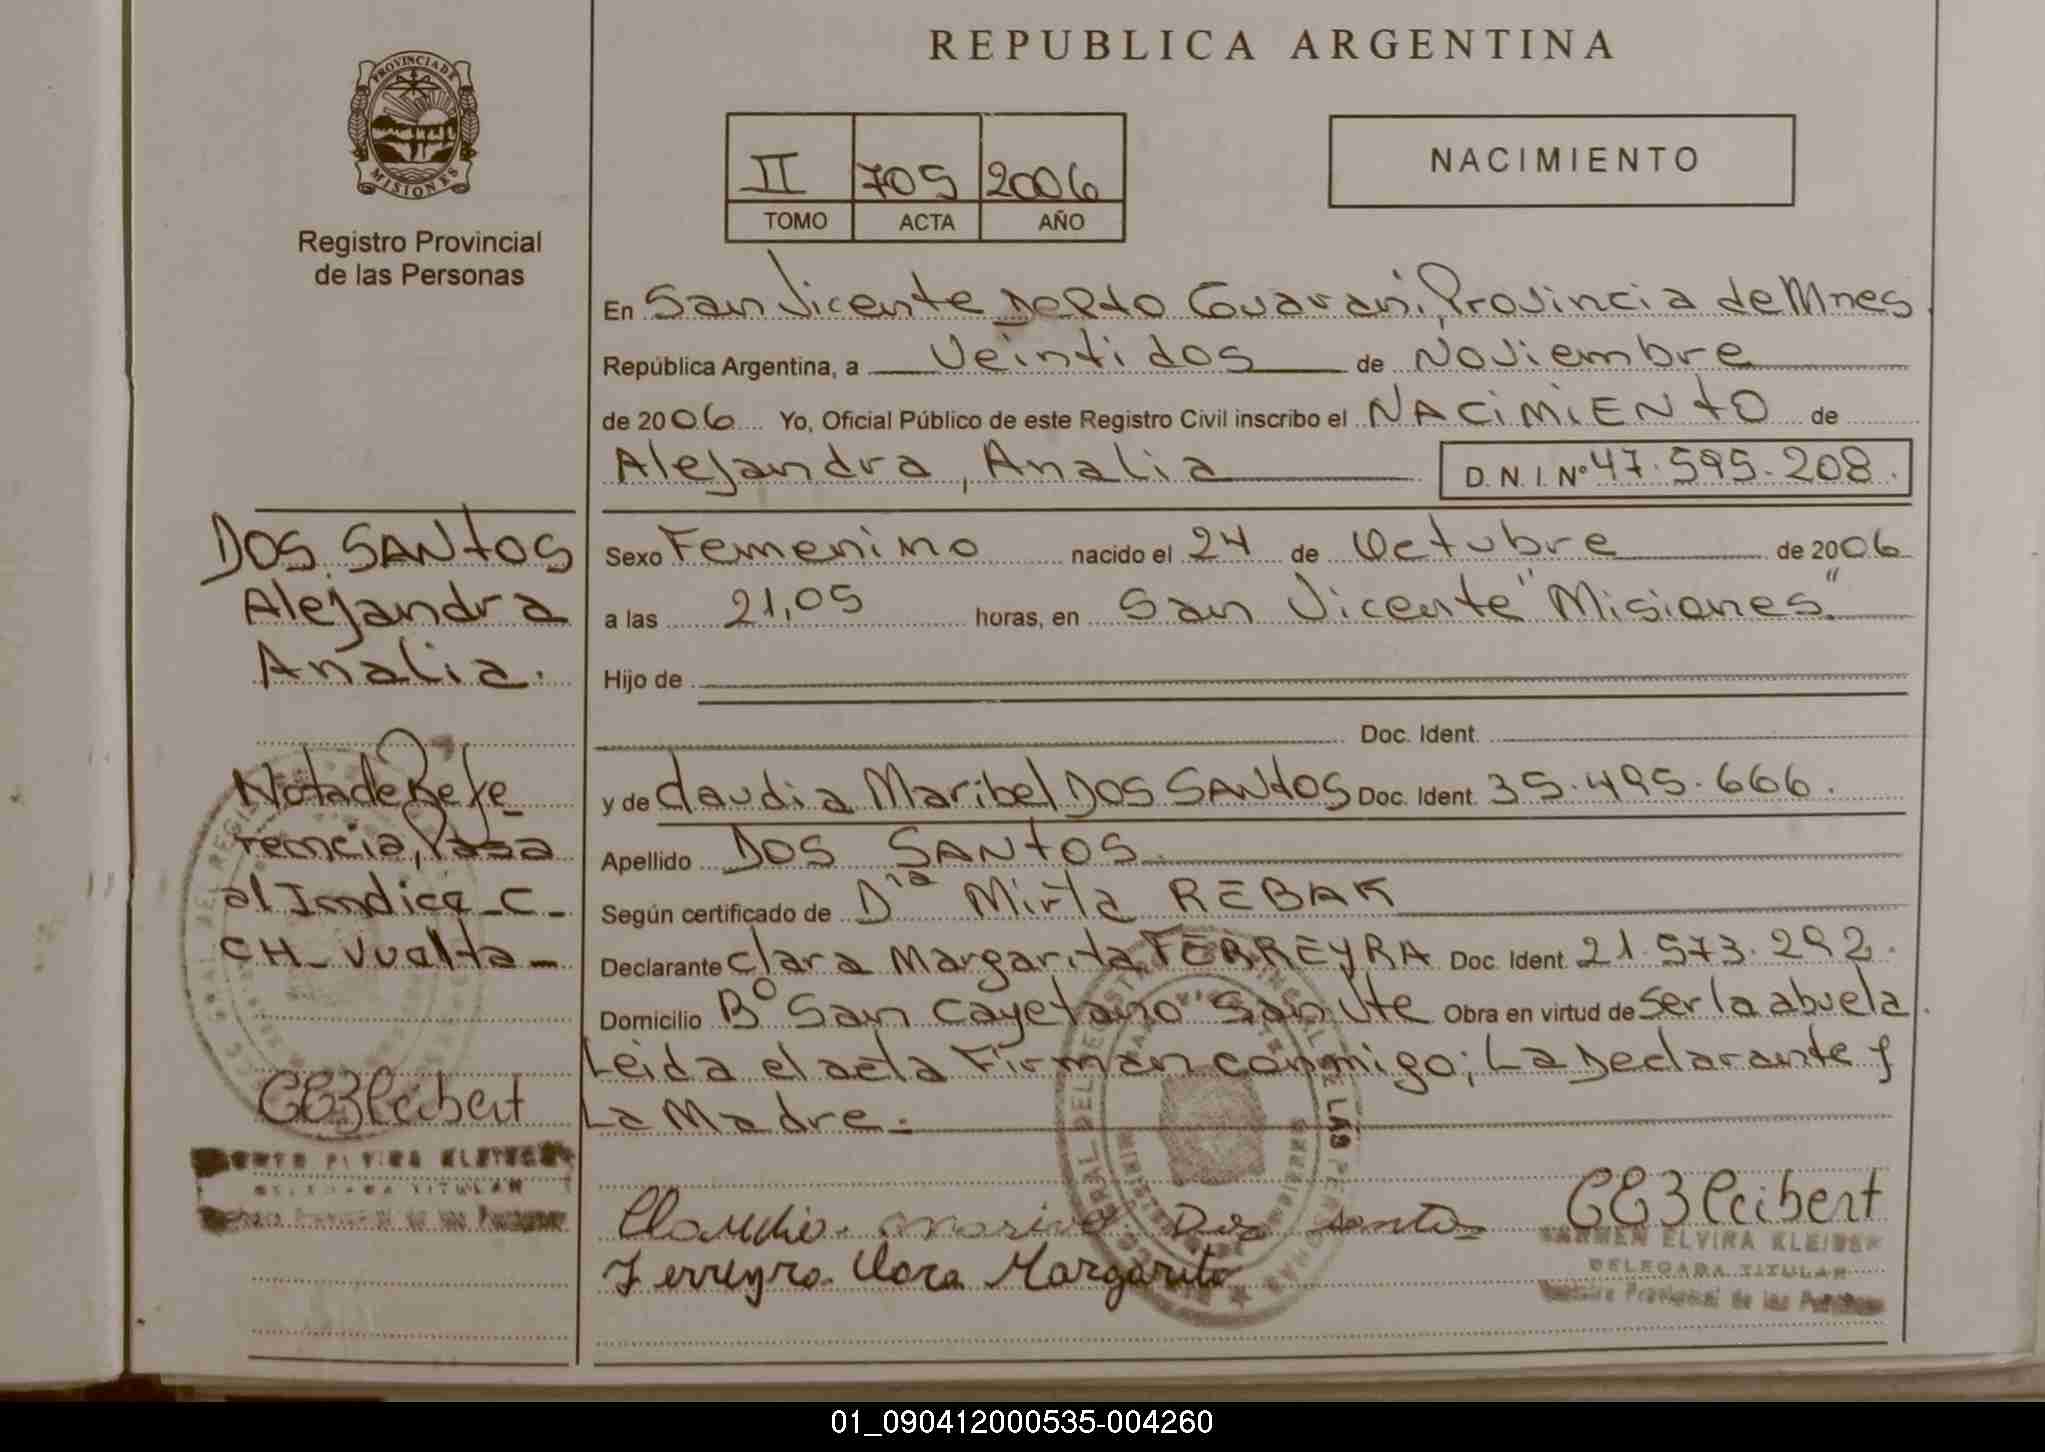 REPUBLICA ARGENTINA
PROVINCIA DE MISIONES
Registro Provincial
de las Personas
II 705 2006
TOMO ACTA AÑO
NACIMIENTO
En San Vicente Depto Guarani, Provincia de Mnes
República Argentina, a Veintidos de Noviembre
de 2006 Yo, Oficial Público de este Registro Civil inscribo el NACIMIENTO de
Alejandra, Analia D. N. I. Nº 47.595.208.
DOS SANTOS
Alejandra
Analia.
Sexo Femenino nacido el 24 de Octubre de 2006
a las 21,05 horas, en San Vicente "Misiones"
Hijo de
Doc. Ident.
y de Claudia Maribel DOS SANTOS Doc. Ident. 35.495.666.
Apellido DOS SANTOS
Según certificado de Dña Mirta REBAK
Declarante Clara Margarita FERREYRA Doc. Ident. 21.573.292.
Domicilio Bº San Cayetano San Vte Obra en virtud de Ser la abuela.
Leida el acta Firman conmigo; La Declarante y
La Madre.
Nota de Refe
rencia, Pasa
al Indice - C -
CH - Vuelta -
CEKleibert
CARMEN ELVIRA KLEIBER
DELEGADA TITULAR
Registro Provincial de las Personas
Claudia Dos Santos
Ferreyra Clara Margarita
CEKleibert
CARMEN ELVIRA KLEIBER
DELEGADA TITULAR
Registro Provincial de las Personas
01_090412000535-004260